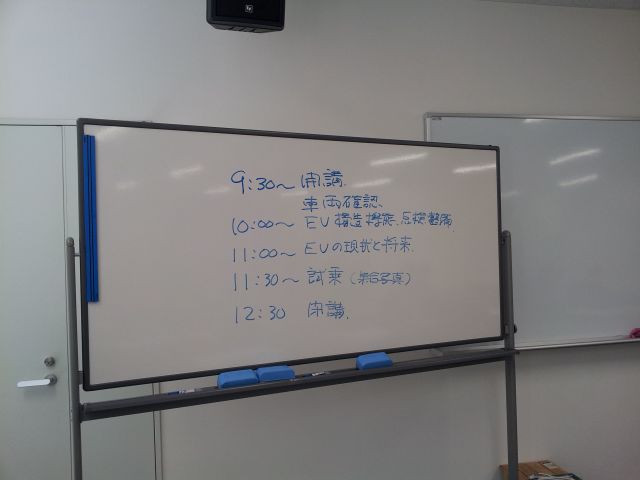 9:30〜 開講.
車両確認、
10:00〜 EV 構造機能、点検整備.
11:00〜 EVの現状と将来.
11:30〜 試乗 (集合写真)
12:30 閉講.